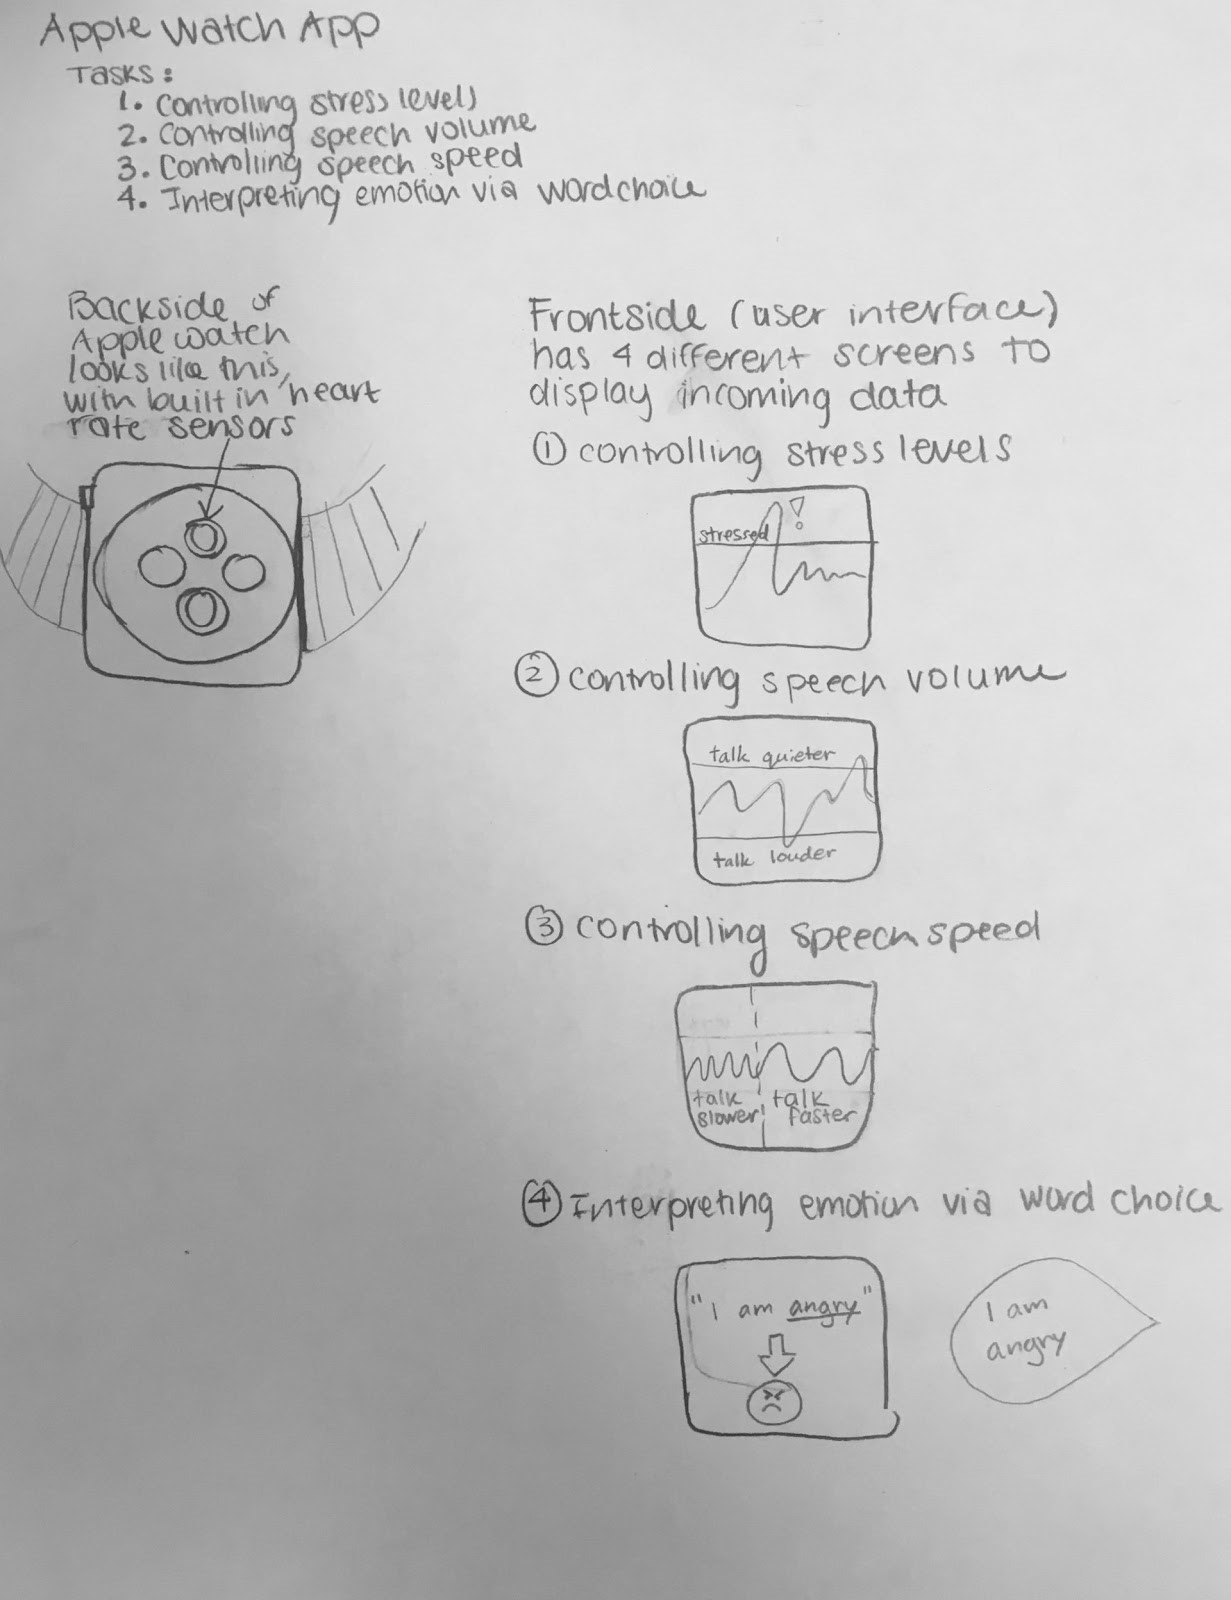 Apple Watch App
Tasks:
1. Controlling stress levels
2. Controlling speech volume
3. Controlling speech speed
4. Interpreting emotion via word choice
Backside of
Apple watch
looks like this,
with built in heart
rate sensors
Frontside (user interface)
has 4 different screens to
display incoming data
① controlling stress levels
stressed !
② controlling speech volume
talk quieter
talk louder
③ controlling speech speed
talk talk
slower faster
④ Interpreting emotion via word choice
"I am angry"
I am
angry